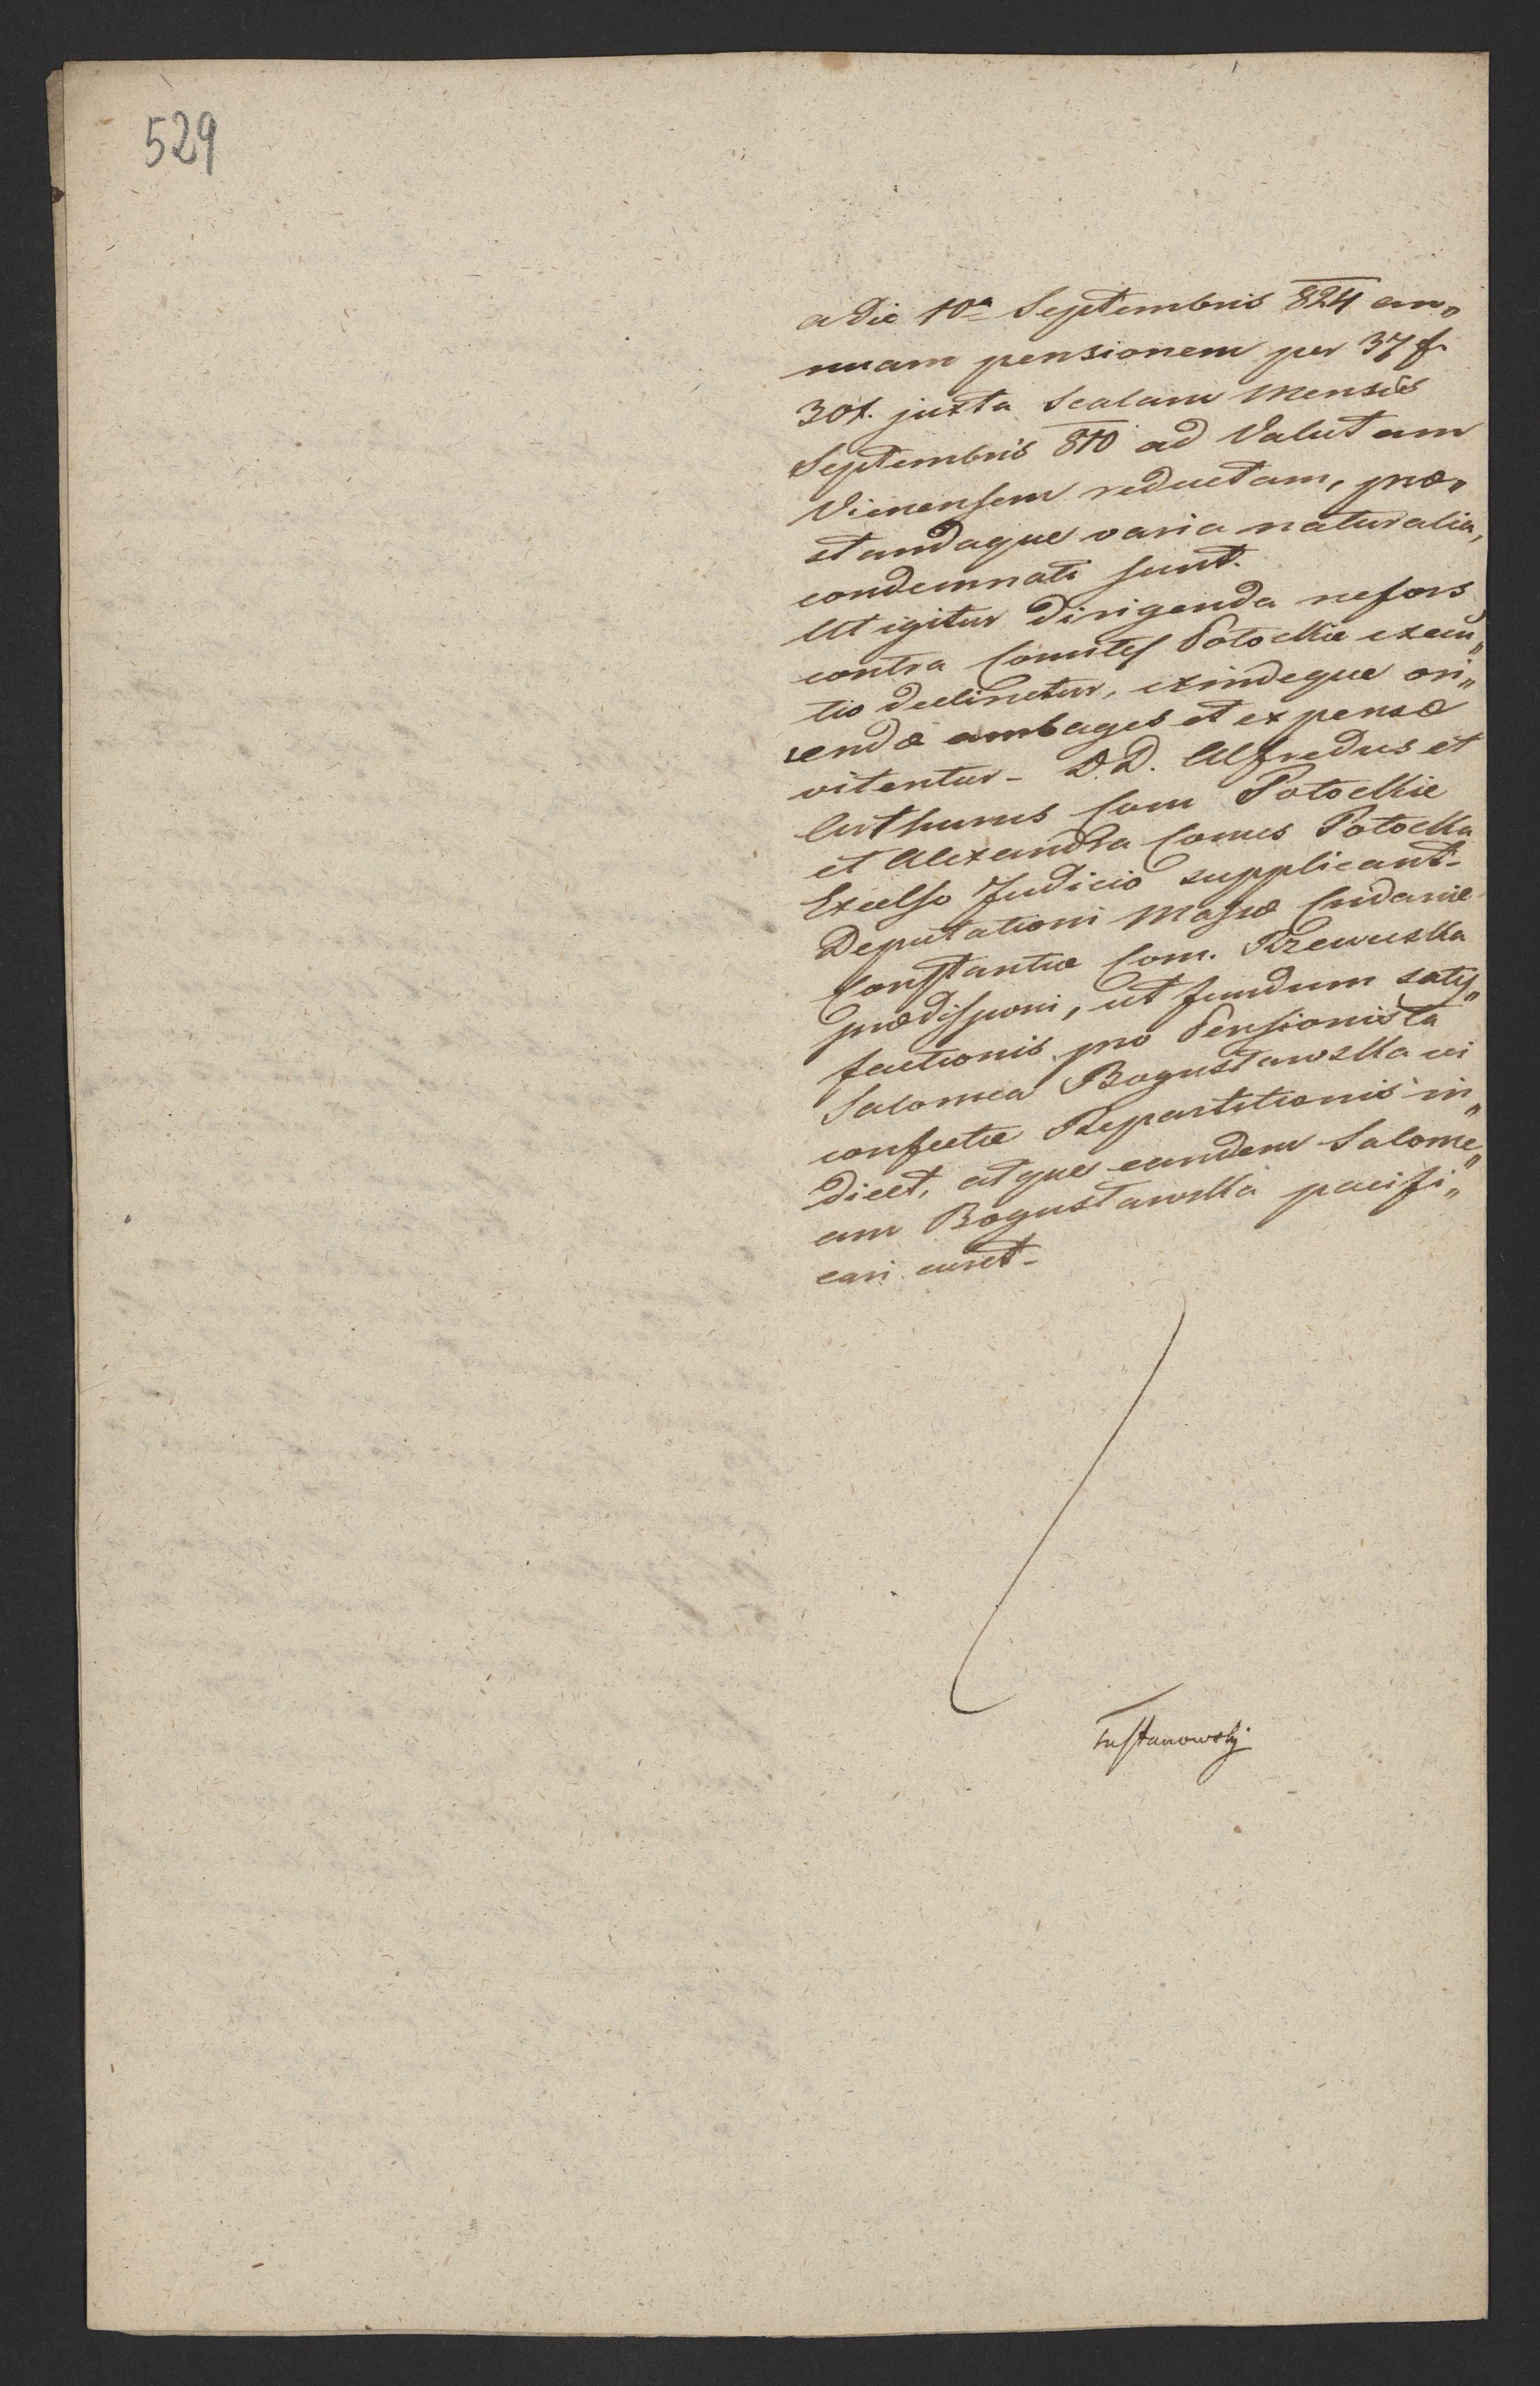 529
a die 10a Septembris 824 an„
nuam pensionem per 37 f
30 x. juxta Scalam Mensis
Septembris 810 ad Valutam
Vienensem reductam, præ„
standaque varia naturalia,
condemnati sunt.
Ut igitur dirigenda nefors
contra Comites Potockie execu„
tio declinetur, exindeque ori„
endæ ambages et expensæ
vitentur – D.D. Alfredus et
Arthurus Com Potockie
et Alexandra Comes Potocka
Excelso Judicio supplicant –
Deputationi Massæ Cridariæ
Constantiæ Com. Rzewuska
prædisponi, ut fundum satis„
factionis pro Pensionista
Salomea Bogustawska vi
confectæ Repartitionis in„
dicet, atque eandem Salome„
am Bogustawska pacifi„
cari curet –
Tustanowski